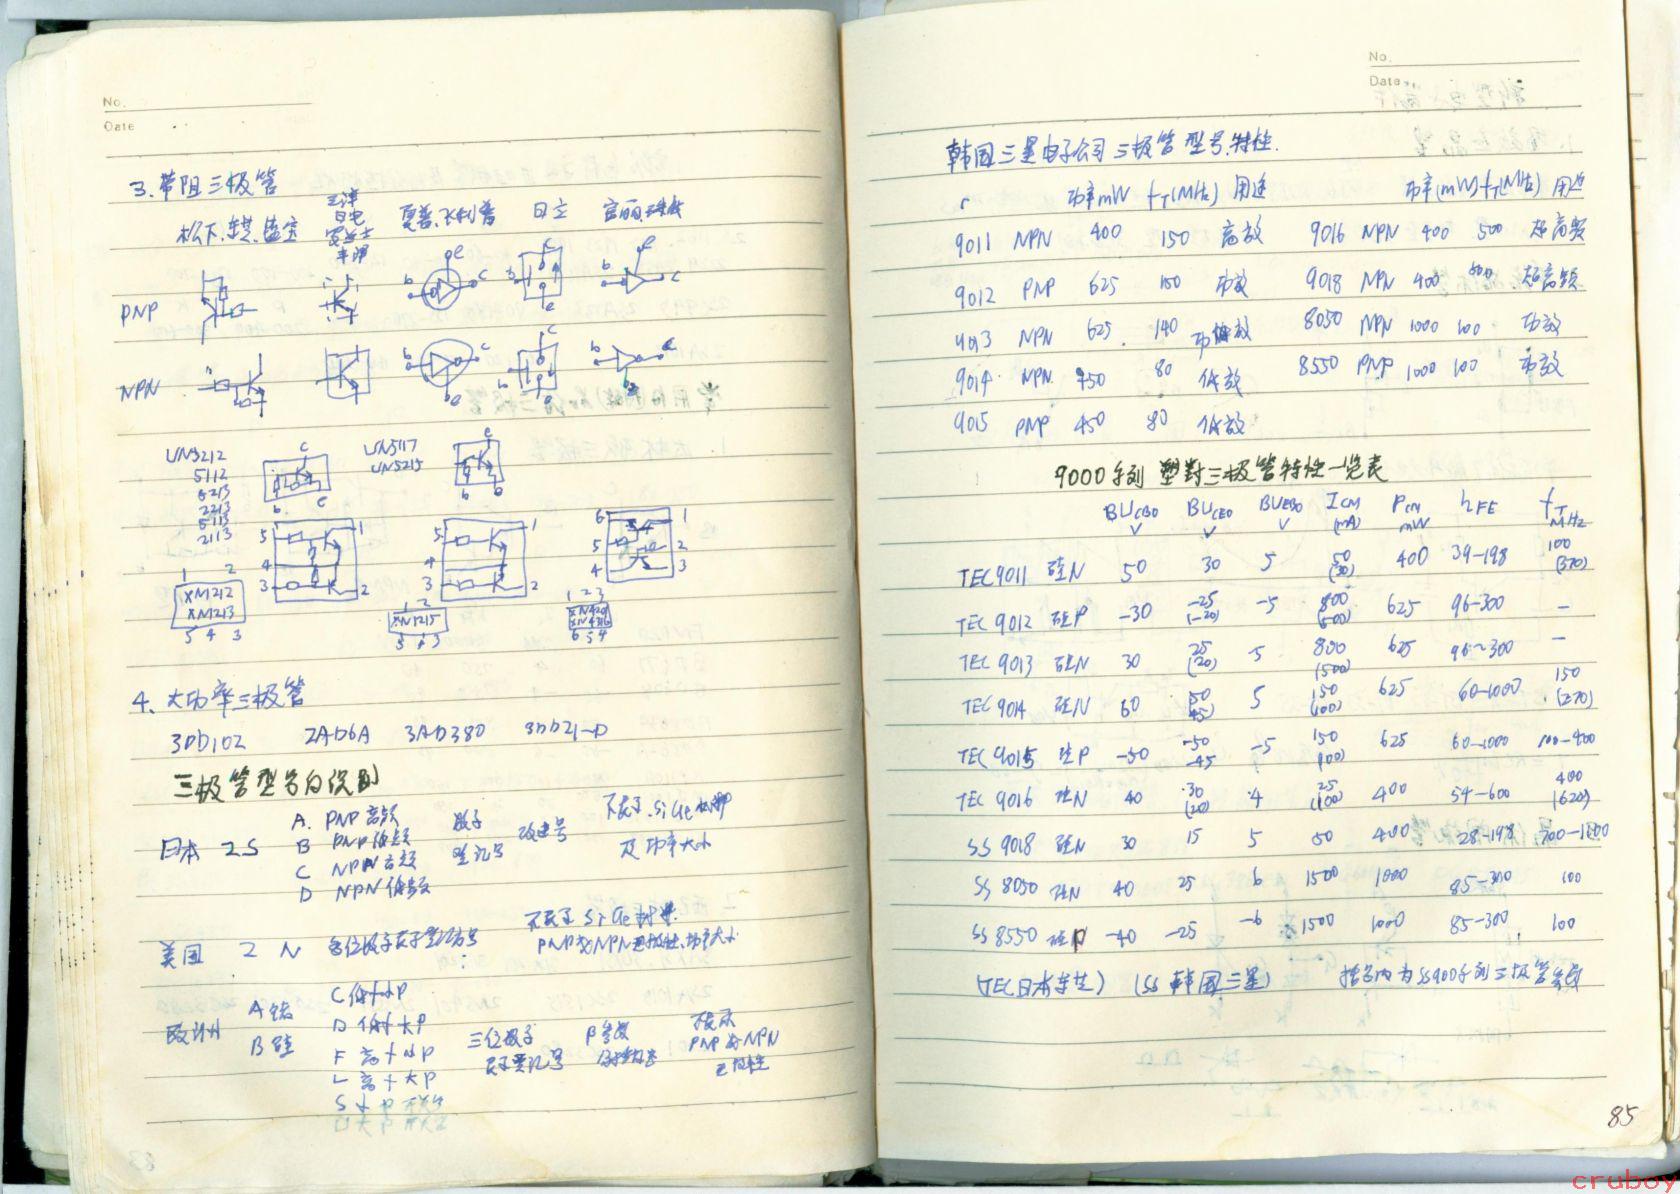 No.
Date
3.带阻三极管
松下.东芝.蓝宝
三洋
日电
富士
夏普.飞利普
日立
富丽
PNP
b e c
NPN
UN5212
5112
5213
2213
5113
2113
UN5117
UN5215
5 1
4
3 2
5 1
4
3 2
6 1
5 2
4 3
1 2
XM212
XM213
5 4 3
1 2
XN1215
5 4 3
1 2 3
6 5 4
4、大功率三极管
3DD102 2AD6A 3AD380 3DD21-D
三极管型号的识别
日本 2S
A. PNP 高频
B PNP 低频
C NPN 高频
D NPN 低频
数字
登记号
改进号
不表示.Si Ge 材料
及功率大小
美国 2 N 多位数字表示登记号
不表示 Si Ge 材料.
PNP或NPN 极性、功率大小
欧洲
A 锗
B 硅
C 低f 小P
D 低f 大P
F 高f 小P
L 高f 大P
S 小P 开关
U 大P 开关
三位数字
表示登记号
β参数
不表示
PNP或NPN
极性
No.
Date
韩国三星电子公司三极管型号.特性.
功率mW fT(MHz) 用途 功率(mW) fT(MHz) 用途
9011 NPN 400 150 高放 9016 NPN 400 500 超高频
9012 PNP 625 150 功放 9018 NPN 400 500 超高频
9013 NPN 625 140 功放 8050 NPN 1000 100 功放
9014 NPN 450 80 低放 8550 PNP 1000 100 功放
9015 PNP 450 80 低放
9000系列 塑封三极管特性一览表
BUCBO V BUCEO V BUEBO V ICM (mA) PCM mW hFE fT MHz
TEC9011 硅N 50 30 5 50 (30) 400 39-198 100 (370)
TEC9012 硅P -30 -25 (-20) -5 800 (500) 625 96-300 —
TEC9013 硅N 30 25 (20) 5 800 (500) 625 96~300 —
TEC9014 硅N 60 50 (45) 5 150 (100) 625 60-1000 150 (270)
TEC9015 硅P -50 -50 -45 -5 150 (100) 625 60-1000 100-400
TEC9016 硅N 40 30 (20) 4 25 (100) 400 54-600 400 (620)
SS 9018 硅N 30 15 5 50 400 28-198 700-1100
SS 8050 硅N 40 25 6 1500 1000 85-300 100
SS 8550 硅P -40 -25 -6 1500 1000 85-300 100
(TEC日本东芝) (SS 韩国三星) 括号内为SS900系列三极管参数
85
cruboy